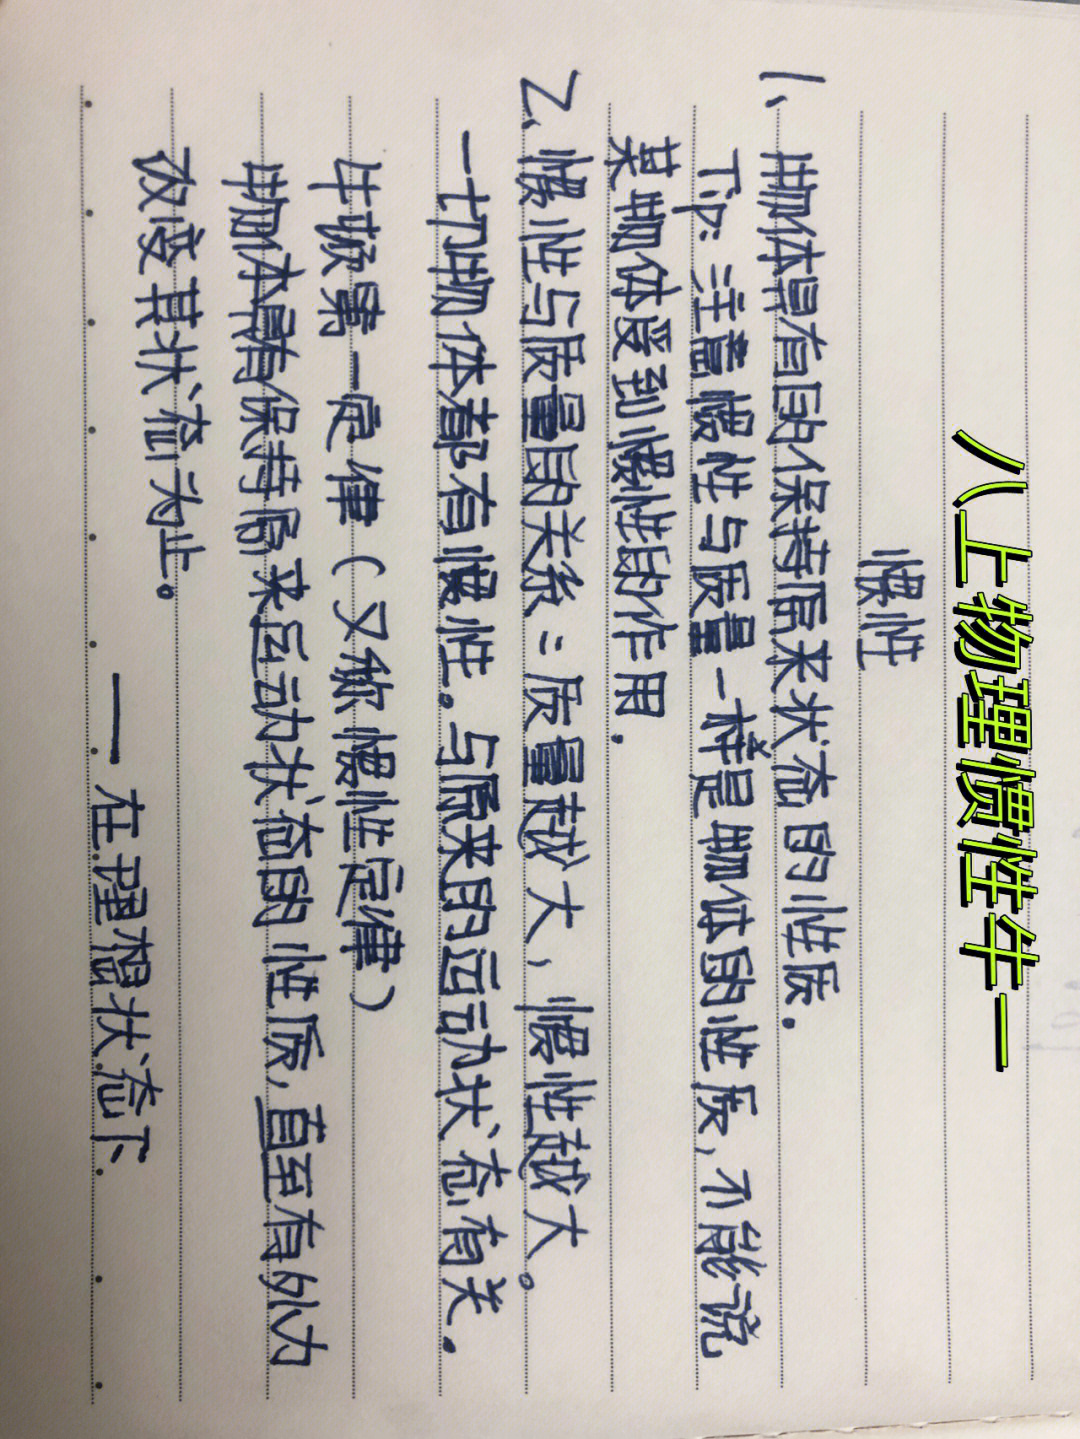 八上物理惯性牛一
惯性
1、物体具有的保持原来状态的性质.
Tip: 注意惯性与质量一样是物体的性质,不能说
某物体受到惯性的作用.
2、惯性与质量的关系:质量越大,惯性越大。
一切物体都有惯性。与原来的运动状态有关.
牛顿第一定律(又称惯性定律)
物体具有保持原来运动状态的性质,直至有外力
改变其状态为止。
——在理想状态下.